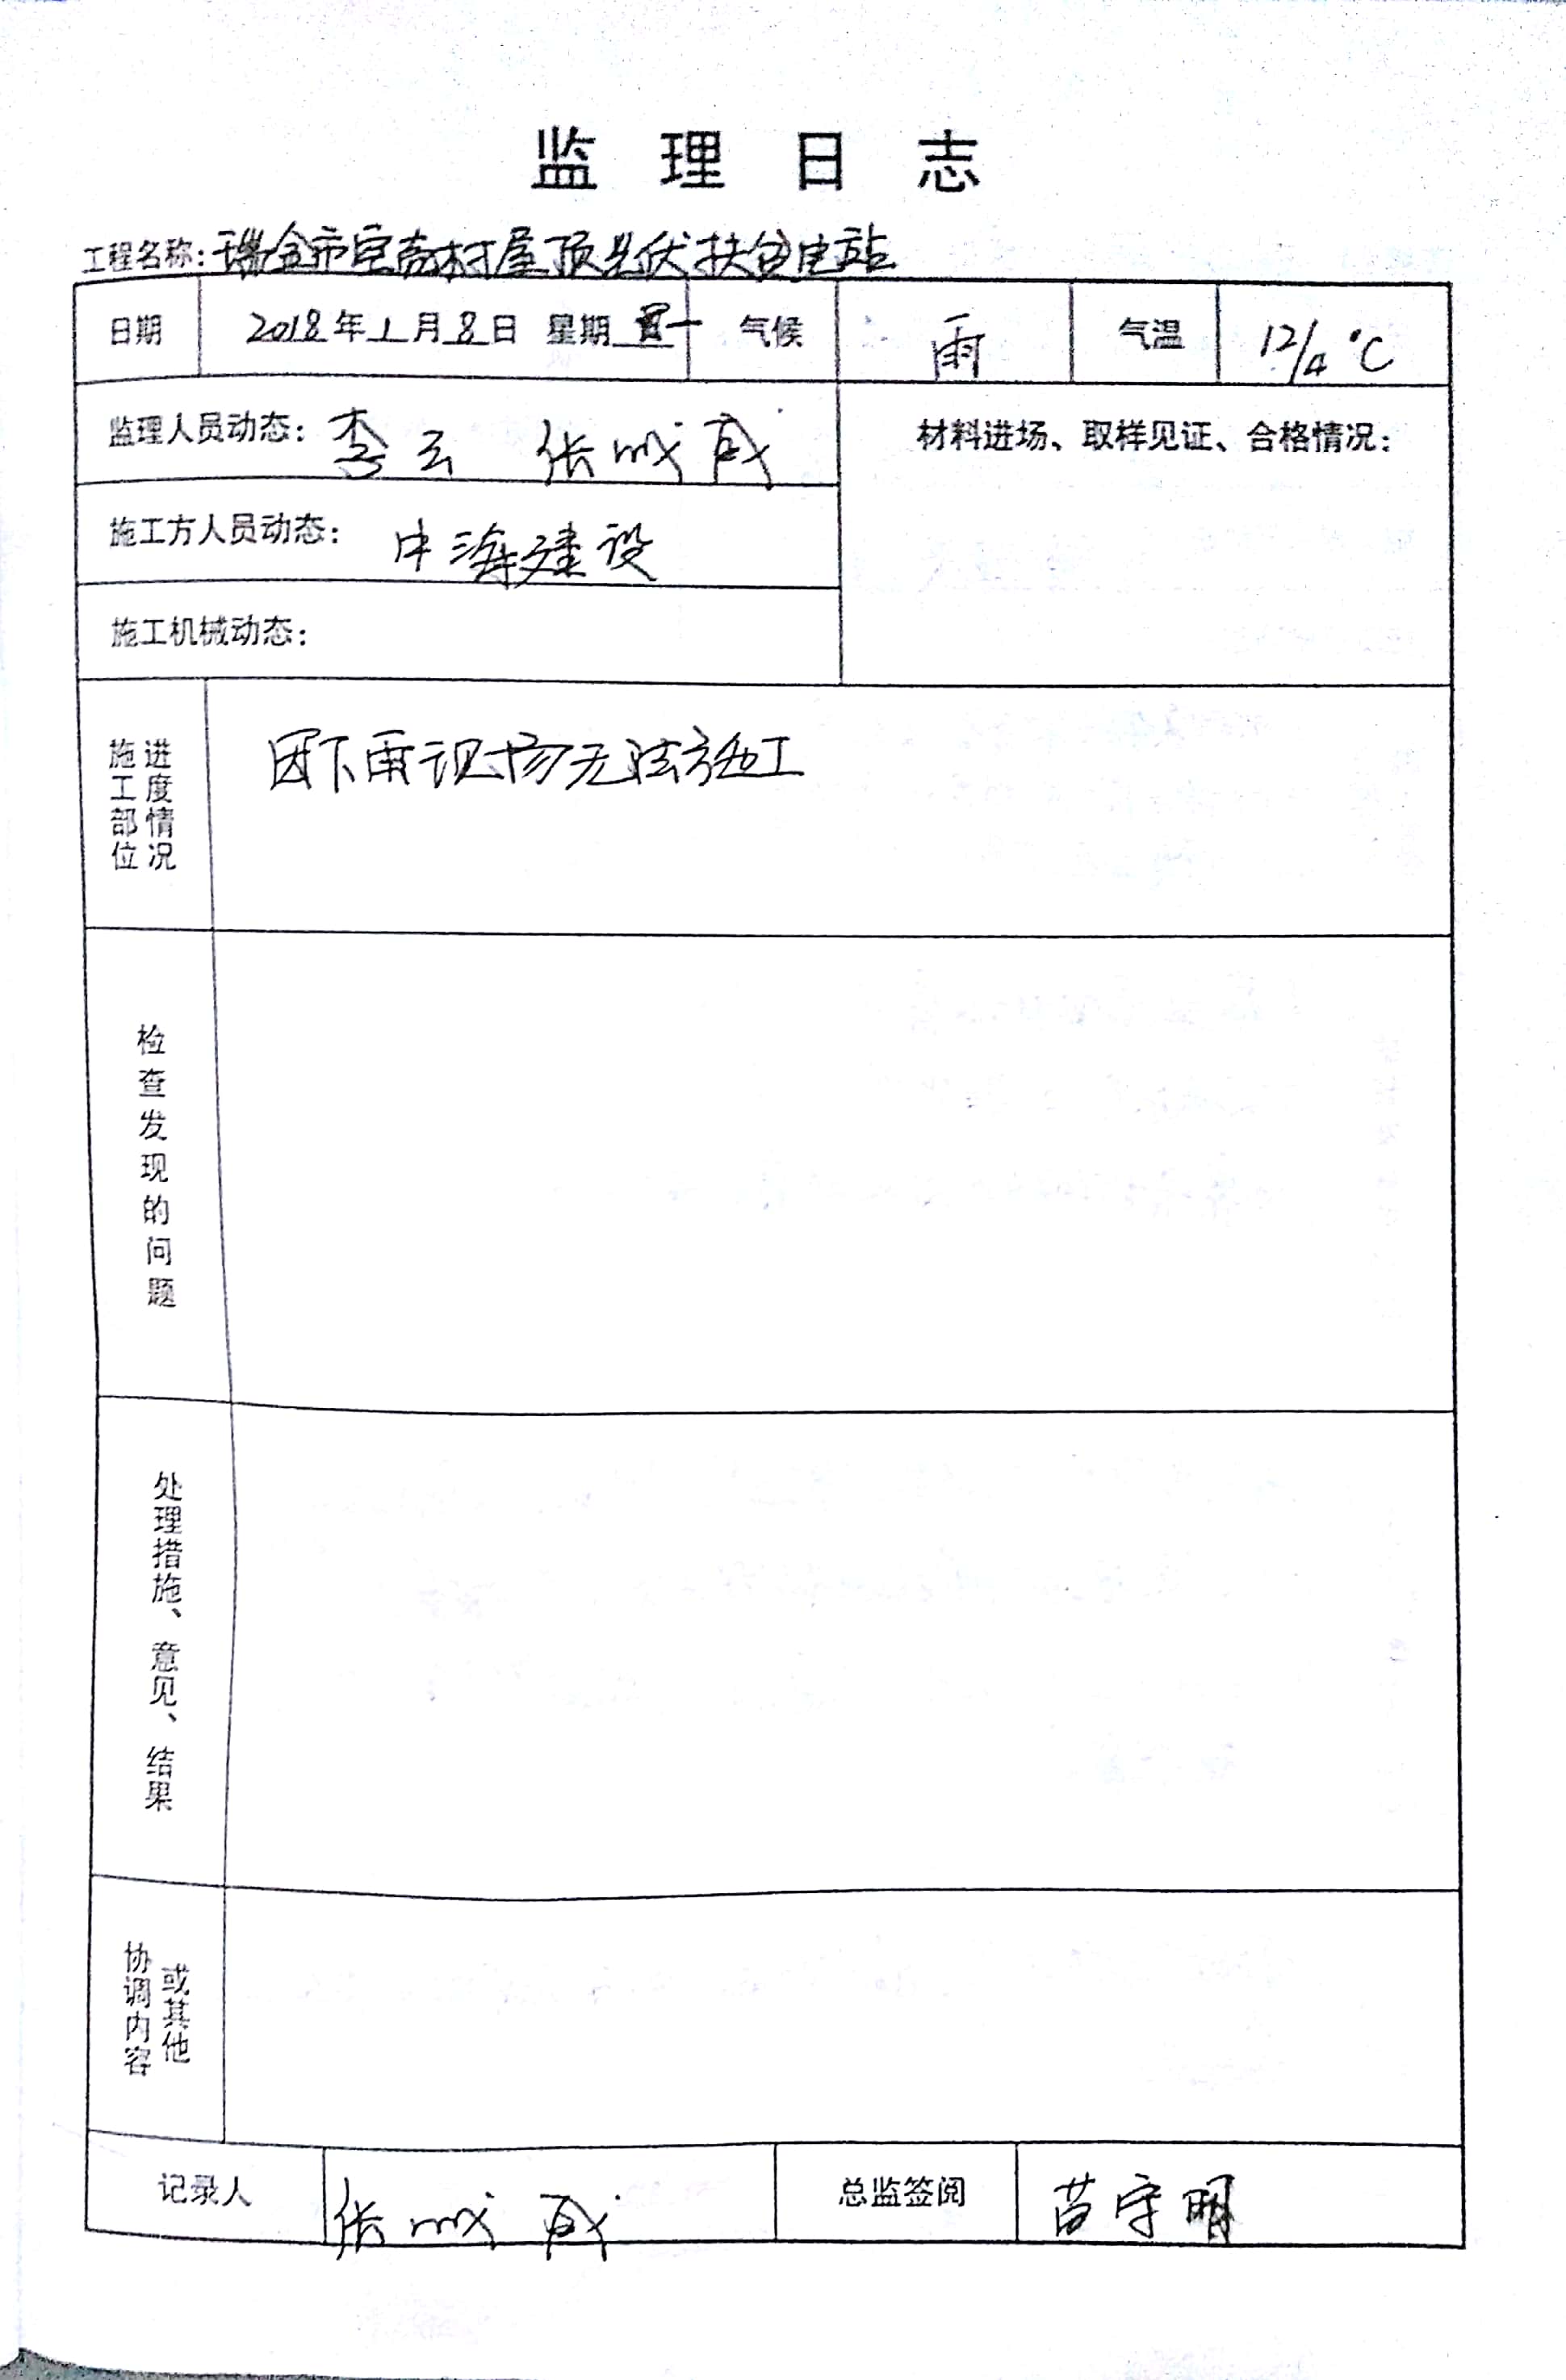 监理日志
工程名称：瑞金市 村屋顶光伏扶贫电站
日期 2018年1月8日 星期一 气候 雨 气温 12/4 ℃
监理人员动态：李云 张
材料进场、取样见证、合格情况：
施工方人员动态：中海建设
施工机械动态：
施工部位
进度情况
因下雨现场无法施工
检查发现的问题
处理措施、意见、结果
协调内容
或其他
记录人 张
总监签阅 苗守明